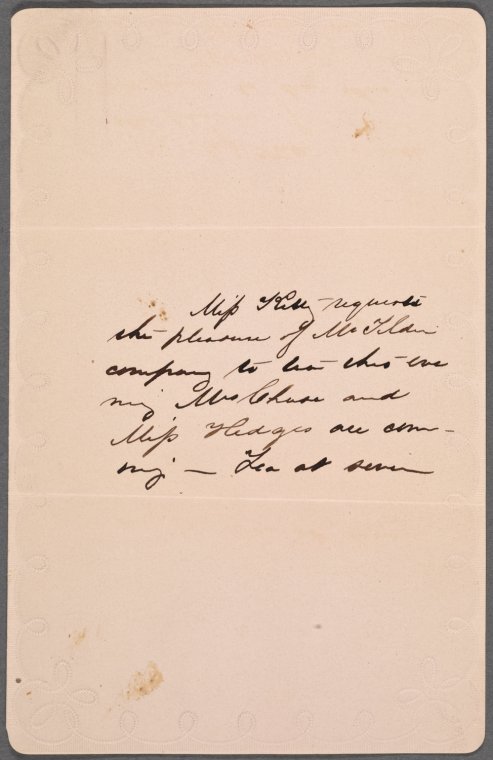 Miss Kelly requests
the pleasure of Mr Tilden
company to tea this eve
ning Mrs Chase and
Miss Hedges are com-
ing — Tea at seven